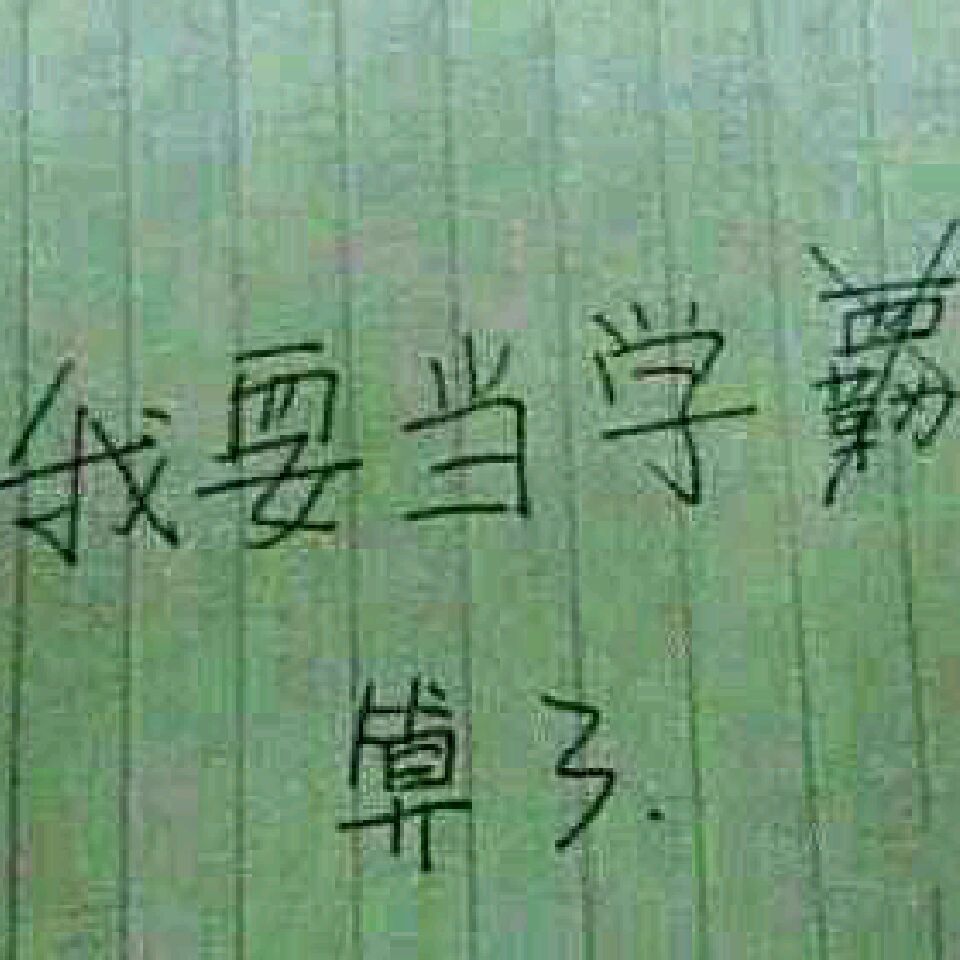 我要当学霸
算了.